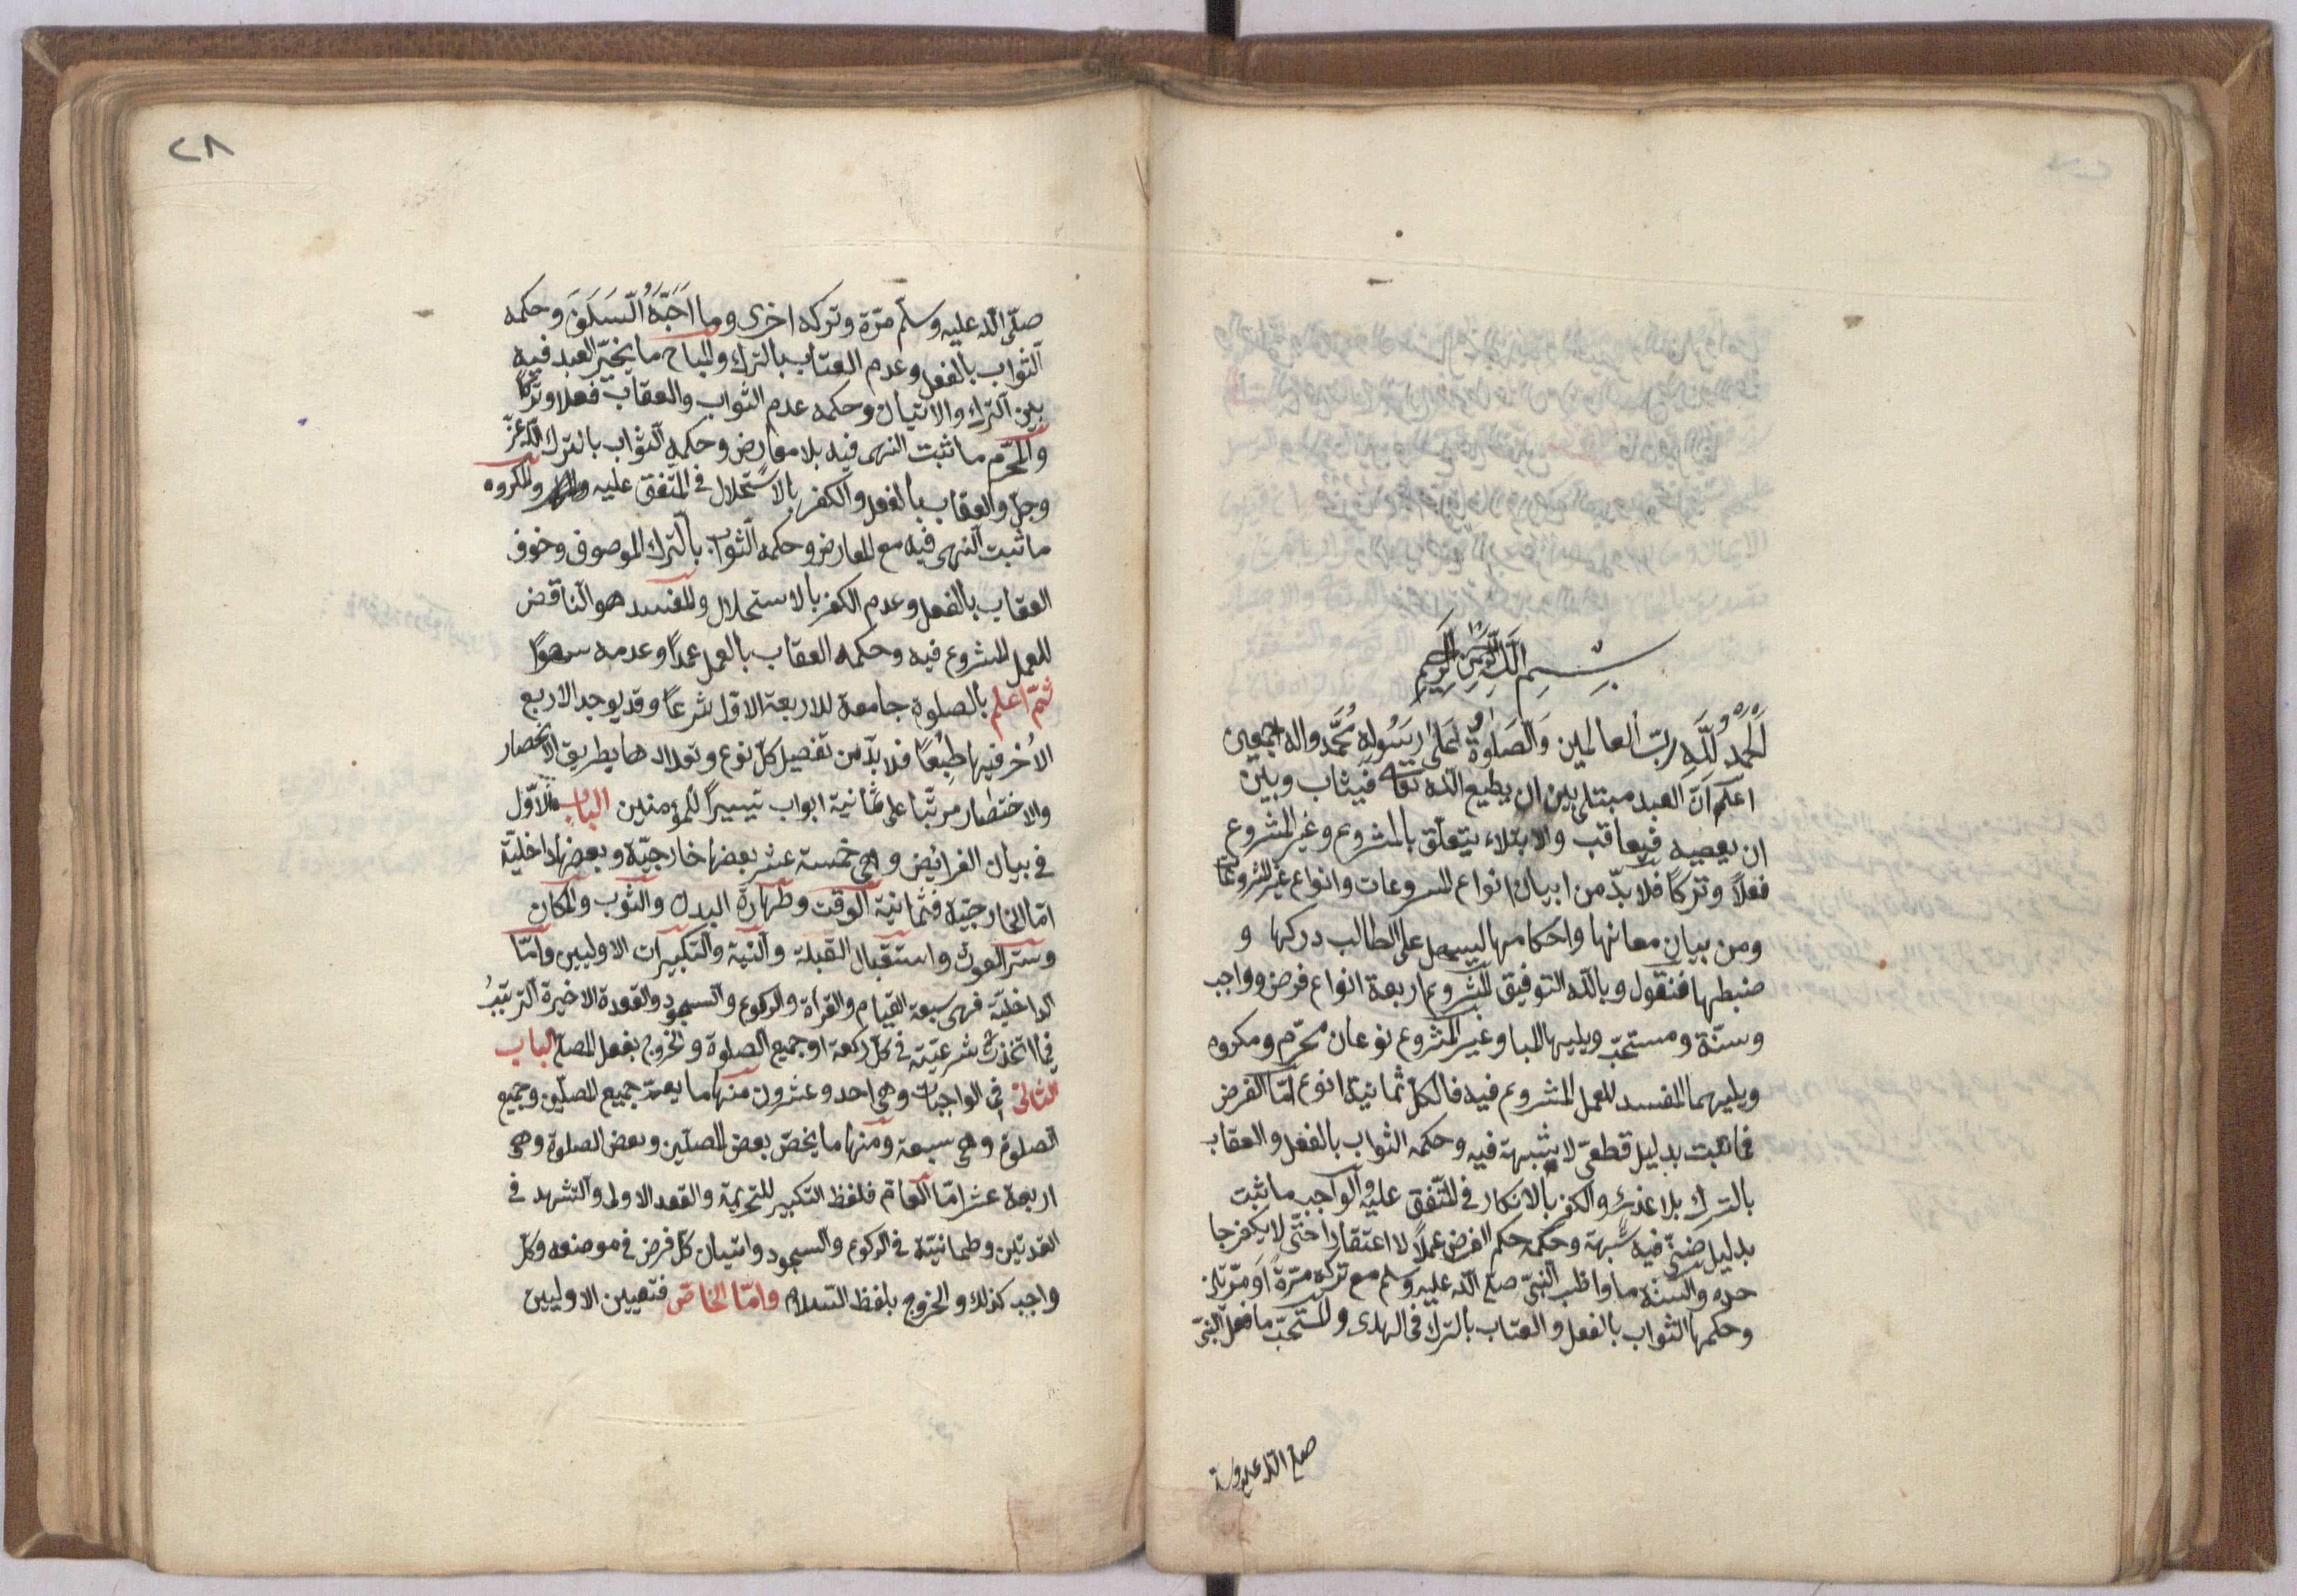 بسم الله الرحمن الرحيم
الحمد لله رب العالمين والصلوة على رسوله محمد واله اجمعين
اعلم ان العبد مبتلى بين ان يطيع الله تعالى فيثاب وبين
ان يعصيه فيعاقب والابتلاء يتعلق بالمشروع وغير المشروع
فعلاً وتركاً فلا بدّ من ابيان انواع المشروعات وانواع غير المشروعات
ومن بيان معانها واحكامها ليسهل على الطالب دركها و
ضبطها فنقول وبالله التوفيق المشروع اربعة انواع فرض وواجب
وسنّة ومستحبّ ويليها المباح وغير المشروع نوعان محرّم ومكروه
ويليهما المفسد للعمل المشروع فيه فالكلّ ثمانية انوع امّا الفرض
فما ثبت بدليل قطعىّ لا شبهة فيه وحكمه الثواب بالفعل والعقاب
بالترك بلا عذر والكفر بالانكار فى المتّفق عليه والواجب ما ثبت
بدليل ضنىّ فيه شبهة وحكمه حكم الفرض عملاً لا اعتقاداً حتّى لا يكفر جا
حده والسنة ما واظب النبىّ صلى الله عليه وسلم مع تركه مرّة او مرّتين
وحكمها الثواب بالفعل والعتاب بالترك فى الهدى والمستحبّ ما فعل النبىّ
صلى الله عليه وسلم
٢٨
صلّى الله عليه وسلّم مرّة وتركه اخرى وما احبّه السلف وحكمه
الثواب بالفعل وعدم العتاب بالترك والمباح ما يخيّر العبد فيه
بين الترك والاتيان وحكمه عدم الثواب والعقاب فعلا وتركاً
والمحرّم ما ثبت النهى فيه بلا معارض وحكمه الثواب بالترك لله عزّ
وجلّ والعقاب بالفعل والكفر بالاستحلال فى المتّفق عليه والمكروه
ما ثبت النهى فيه مع المعارض وحكمه الثواب بالترك الموصوف وخوف
العقاب بالفعل وعدم الكفر بالاستحلال والمفسد هو الناقض
للعمل المشروع فيه وحكمه العقاب بالعمل عمداً وعدمه سهواً
ثمّ اعلم بالصلوة جامعة للاربعة الاول شرعاً وقد يوجد الاربع
الاخر فيها طبعاً فلا بدّ من تفصيل كلّ نوع وتعدادها بطريق الانحصار
والاختصار مرتّبا على ثمانية ابواب تيسيراً للمؤمنين الباب الاوّل
فى بيان الفرائض وهى خمسة عشر بعضها خارجيّة وبعضها داخليّة
امّا الخارجيّة فثمانية الوقت وطهارة البدن والثوب والمكان
وستر العورة واستقبال القبلة والنية والتكبيرات الاوليين وامّا
الداخليّة فهى سبعة القيام والقرأة والركوع والسجود والقعدة الاخيرة الترتيب
فيما اتّخذت شرعيّته فى كلّ ركعة او جميع الصلوة والخروج بفعل المصلّى الباب
الثانى فى الواجبات وهى احد وعشرون منها ما يعمّ جميع المصلّين وجميع
الصلوة وهى سبعة ومنها ما يخصّ بعض المصلّين وبعض الصلوة وهى
اربعة عشر امّا العامّ فلفظ التكبير للتحريمة والقعد الاولى والتشهد فى
القعدتين وطمانيّة فى الركوع والسجود واتيان كلّ فرض فى موضعه وكلّ
واجب كذلك والخروج بلفظ السّلام وامّا الخاصّ فتعيين الاوليين